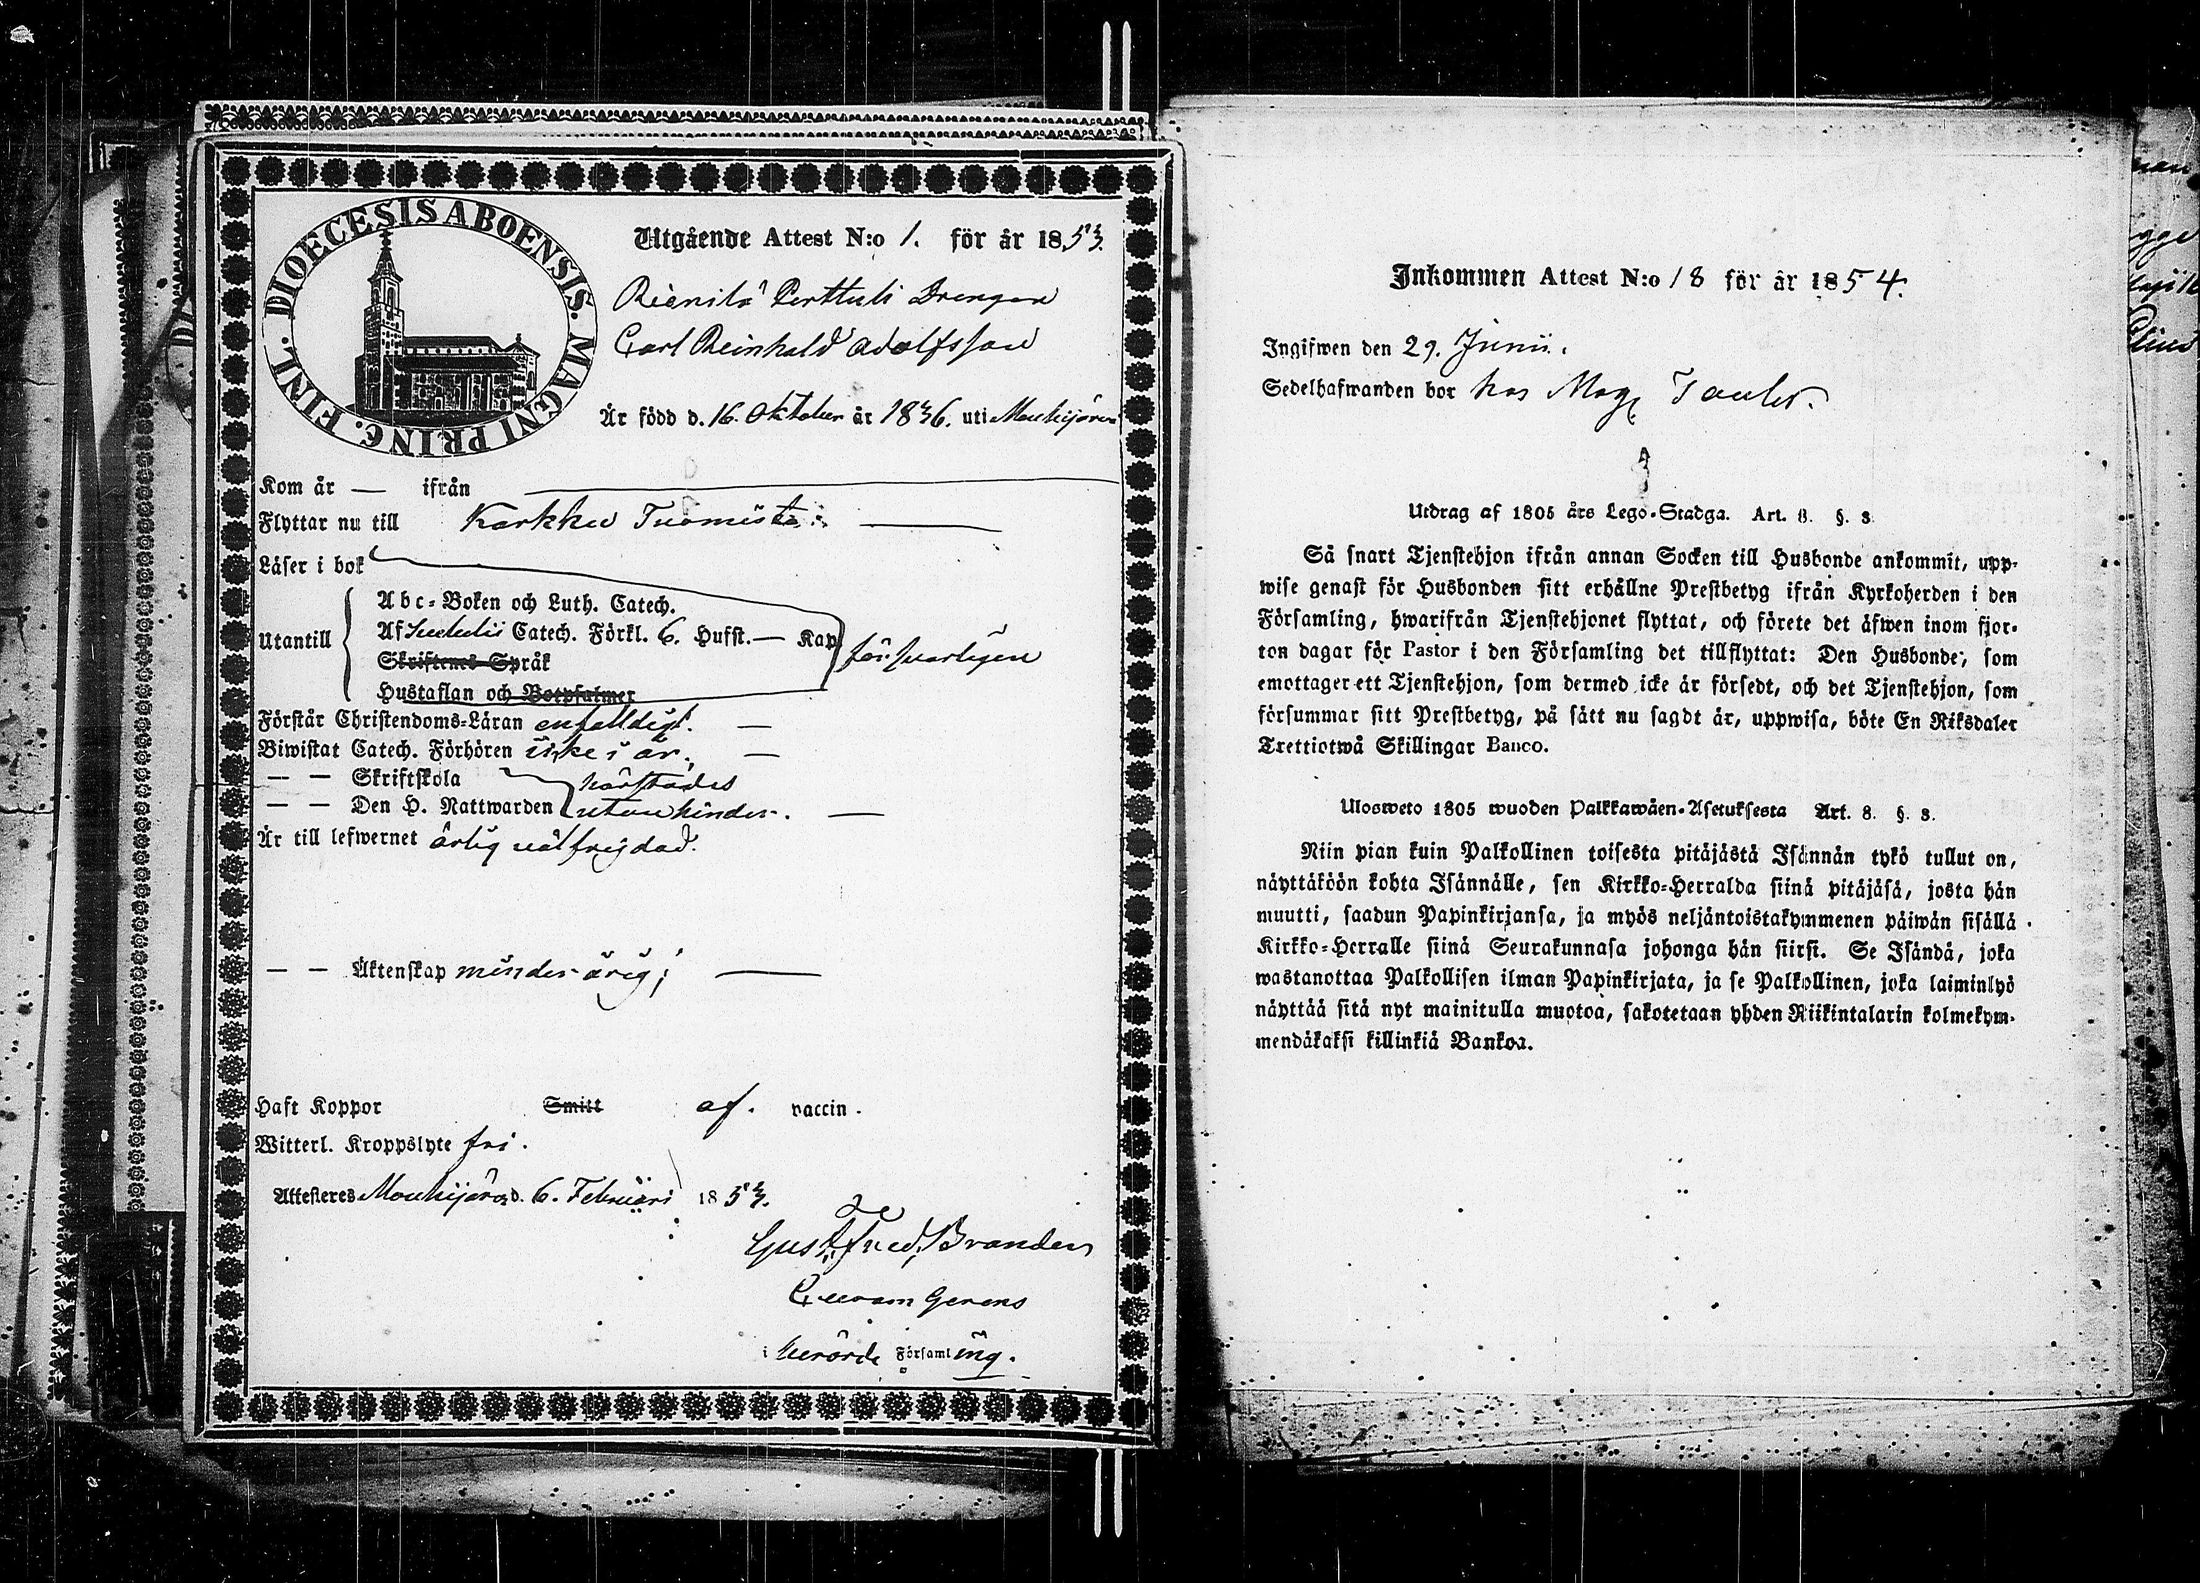 DIOECESIS ABOENSIS. MAGNI PRINC. FINL.
Utgående Attest N:o 1. för år 1853.
Rienilä Perttuli Drengen
Carl Reinhold Adolfsson
Är född d. 16. Oktober år 1836. uti Mouhijärvi
Kom år — ifrån
Flyttar nu till Karkku Tuomisto. —
Läser i bok
Utantill
Abc-Boken och Luth. Catech.
Af Svebelii Catech. Förkl. 6. Hufst. — Kap
Skriftenes Språk
Hustaflan och Botpsalmer
försvarligen
Förstår Christendoms-Läran enfaldigt. —
Biwistat Catech. Förhören icke i år. —
— — Skriftskola härstädes
— — Den H. Nattwarden utan hinder. —
Är till lefwernet ärlig välfrejdad.
— — Äktenskap minderårig; —
Haft Koppor Smitt af. vaccin.
Witterl. Kroppslyte fri.
Attesteras Mouhijärvi d. 6. Februari 1853.
Gust. Fred. Brander
Curam Gerens
i berörde Församling.
Inkommen Attest N:o 18 för år 1854.
Ingifwen den 29. Junii.
Sedelhafwanden bor hos Mag.
Utdrag af 1805 års Lego-Stadga. Art. 8. §. 8
Så snart Tjenstehjon ifrån annan Socken till Husbonde ankommit, upp-
wise genast för Husbonden sitt erhållne Prestbetyg ifrån Kyrkoherden i den
Församling, hwarifrån Tjenstehjonet flyttat, och förete det äfwen inom fjor-
ton dagar för Pastor i den Församling det tillflyttat: Den Husbonde, som
emottager ett Tjenstehjon, som dermed icke är försedt, och det Tjenstehjon, som
försummar sitt Prestbetyg, på sätt nu sagdt är, uppwisa, böte En Riksdaler
Trettiotwå Skillingar Banco.
Ulosweto 1805 wuoden Palkkawäen-Asetuksesta Art. 8. §. 8.
Niin pian kuin Palkollinen toisesta pitäjästä Isännän tykö tullut on,
näyttäköön kohta Isännälle, sen Kirkko-Herralda siinä pitäjäsä, josta hän
muutti, saadun Papinkirjansa, ja myös neljäntoistakymmenen päiwän sisällä
Kirkko-Herralle siinä Seurakunnasa johonga hän siirsi. Se Isändä, joka
wastanottaa Palkollisen ilman Papinkirjata, ja se Palkollinen, joka laiminlyö
näyttää sitä nyt mainitulla muotoa, sakotetaan yhden Riikintalarin kolmekym-
mendäkaksi killinkiä Bankoa.